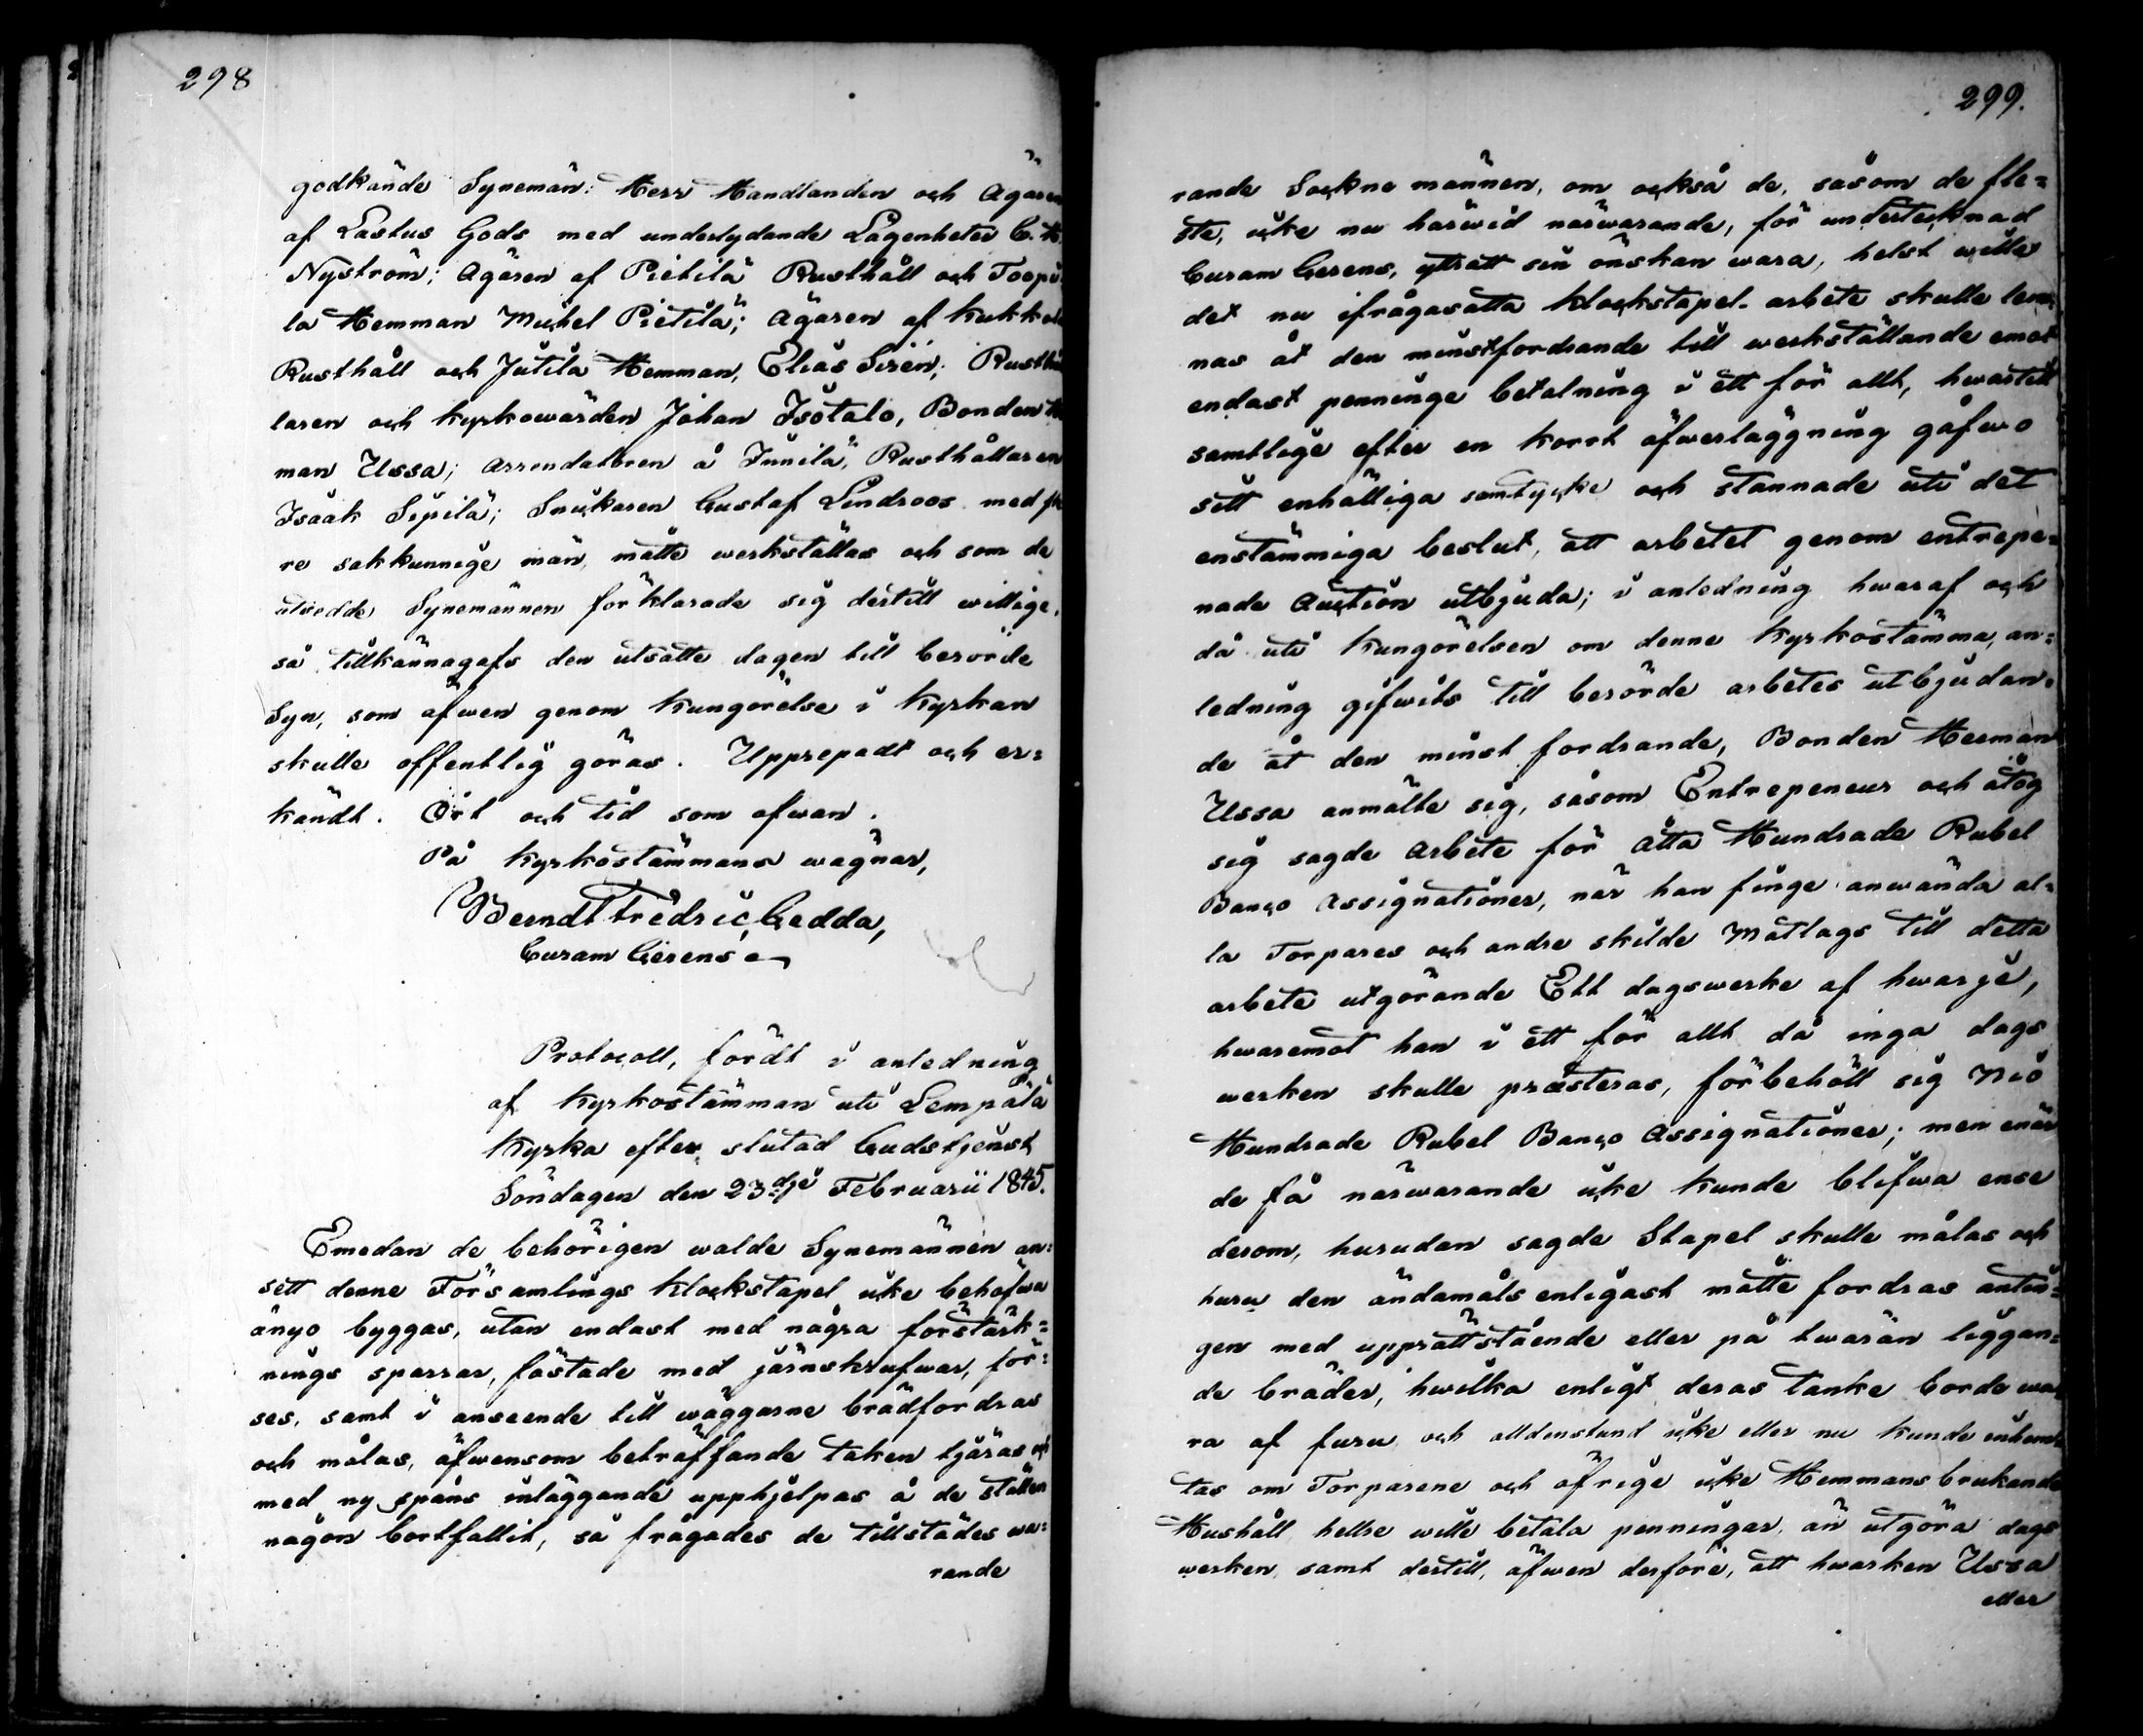 298
godkände Synemän: Herr Handlanden och Ägaren
af Lastus Gods med underlydande Lägenheter C. H.
Nyström; Ägaren af Pietilä Rusthåll och Toopi
la Hemman Michel Pietilä; Ägaren af Kukkola
Rusthåll och Jutila Hemman, Elias Sirén; Rusthål
laren och Kyrkowärden Johan Isotalo, Bonden Her
man Ussa; Arrendatoren å Junnila, Rusthållaren
Isaak Sipilä; Snickaren Gustaf Lindroos med fle
re sakkunnige män, måtte werkställas och som de
utsedde Synemännen förklarade sig dertill willige,
så tillkännagafs den utsatte dagen till berörde
Syn, som äfwen genom Kungörelse i Kyrkan
skulle offentlig göras. Upprepadt och er=
kändt. Ort och tid som ofwan.
På Kyrkostämmans wägnar,
Berndt Fredric Gedda,
Curam Gerens
Protocoll, fördt i anledning
af Kyrkostämman uti Lempälä
Kyrka efter slutad Gudstjenst
Söndagen den 23dje Februarii 1845.
Emedan de behörigen walde Synemännen an=
sett denne Församlings Klockstapel icke behöfwa
ånyo byggas, utan endast med några förstärk=
nings sparrar, fästade med järnskrufwar, för=
ses, samt i anseende till wäggarne brädfordras
och målas, äfwensom beträffande taken tjäras och
med ny spåns inläggande upphjelpas å de ställen
någon bortfallit, så frågades de tillstädes wa=
rande
299.
rande Sockne männen, om också de, såsom de fle=
ste, icke nu härwid närwarande, för undertecknad
Curam Gerens, yttratt sin önskan wara, helst wille
det nu ifrågasatta klockstapel-arbete skulle lem
nas åt den minstfordrande till werkställande emot
endast penninge betalning i ett för allt, hwartill
samtlige efter en kort öfwerläggning gåfwo
sitt enhälliga samtycke och stannade uti det
enstämmiga beslut, att arbetet genom entrepe=
nade Auction utbjuda; i anledning hwaraf och
då uti Kungörelsen om denne Kyrkostämma, an=
ledning gifwits till berörde arbetes utbjudan=
de åt den minst fordrande, Bonden Herman
Ussa anmälte sig, såsom Entrepeneur och åtog
sig sagde Arbete för Åtta Hundrade Rubel
Banco Assignationer, när han finge anwända al=
la Torpares och andre skilde Matlags till detta
arbete utgörande Ett dagswerke af hwarje,
hwaremot han i ett för allt då inga dags
werken skulle præsteras, förbehöll sig Nio
Hundrade Rubel Banco Assignationer; men enär
de få närwarande icke kunde blifwa ense
derom, huruden sagde Stapel skulle målas och
huru den ändamåls enligast måtte fordras antin=
gen med upprättstående eller på twären liggan=
de bräder, hwilka enligt deras tanke borde wa
ra af furu och alldenstund icke eller nu kunde inhem
tas om Torparene och öfrige icke Hemmans brukande
Hushåll hellre wille betala penningar, än utgöra dags
werken samt dertill, äfwen derföre, att hwarken Ussa
eller